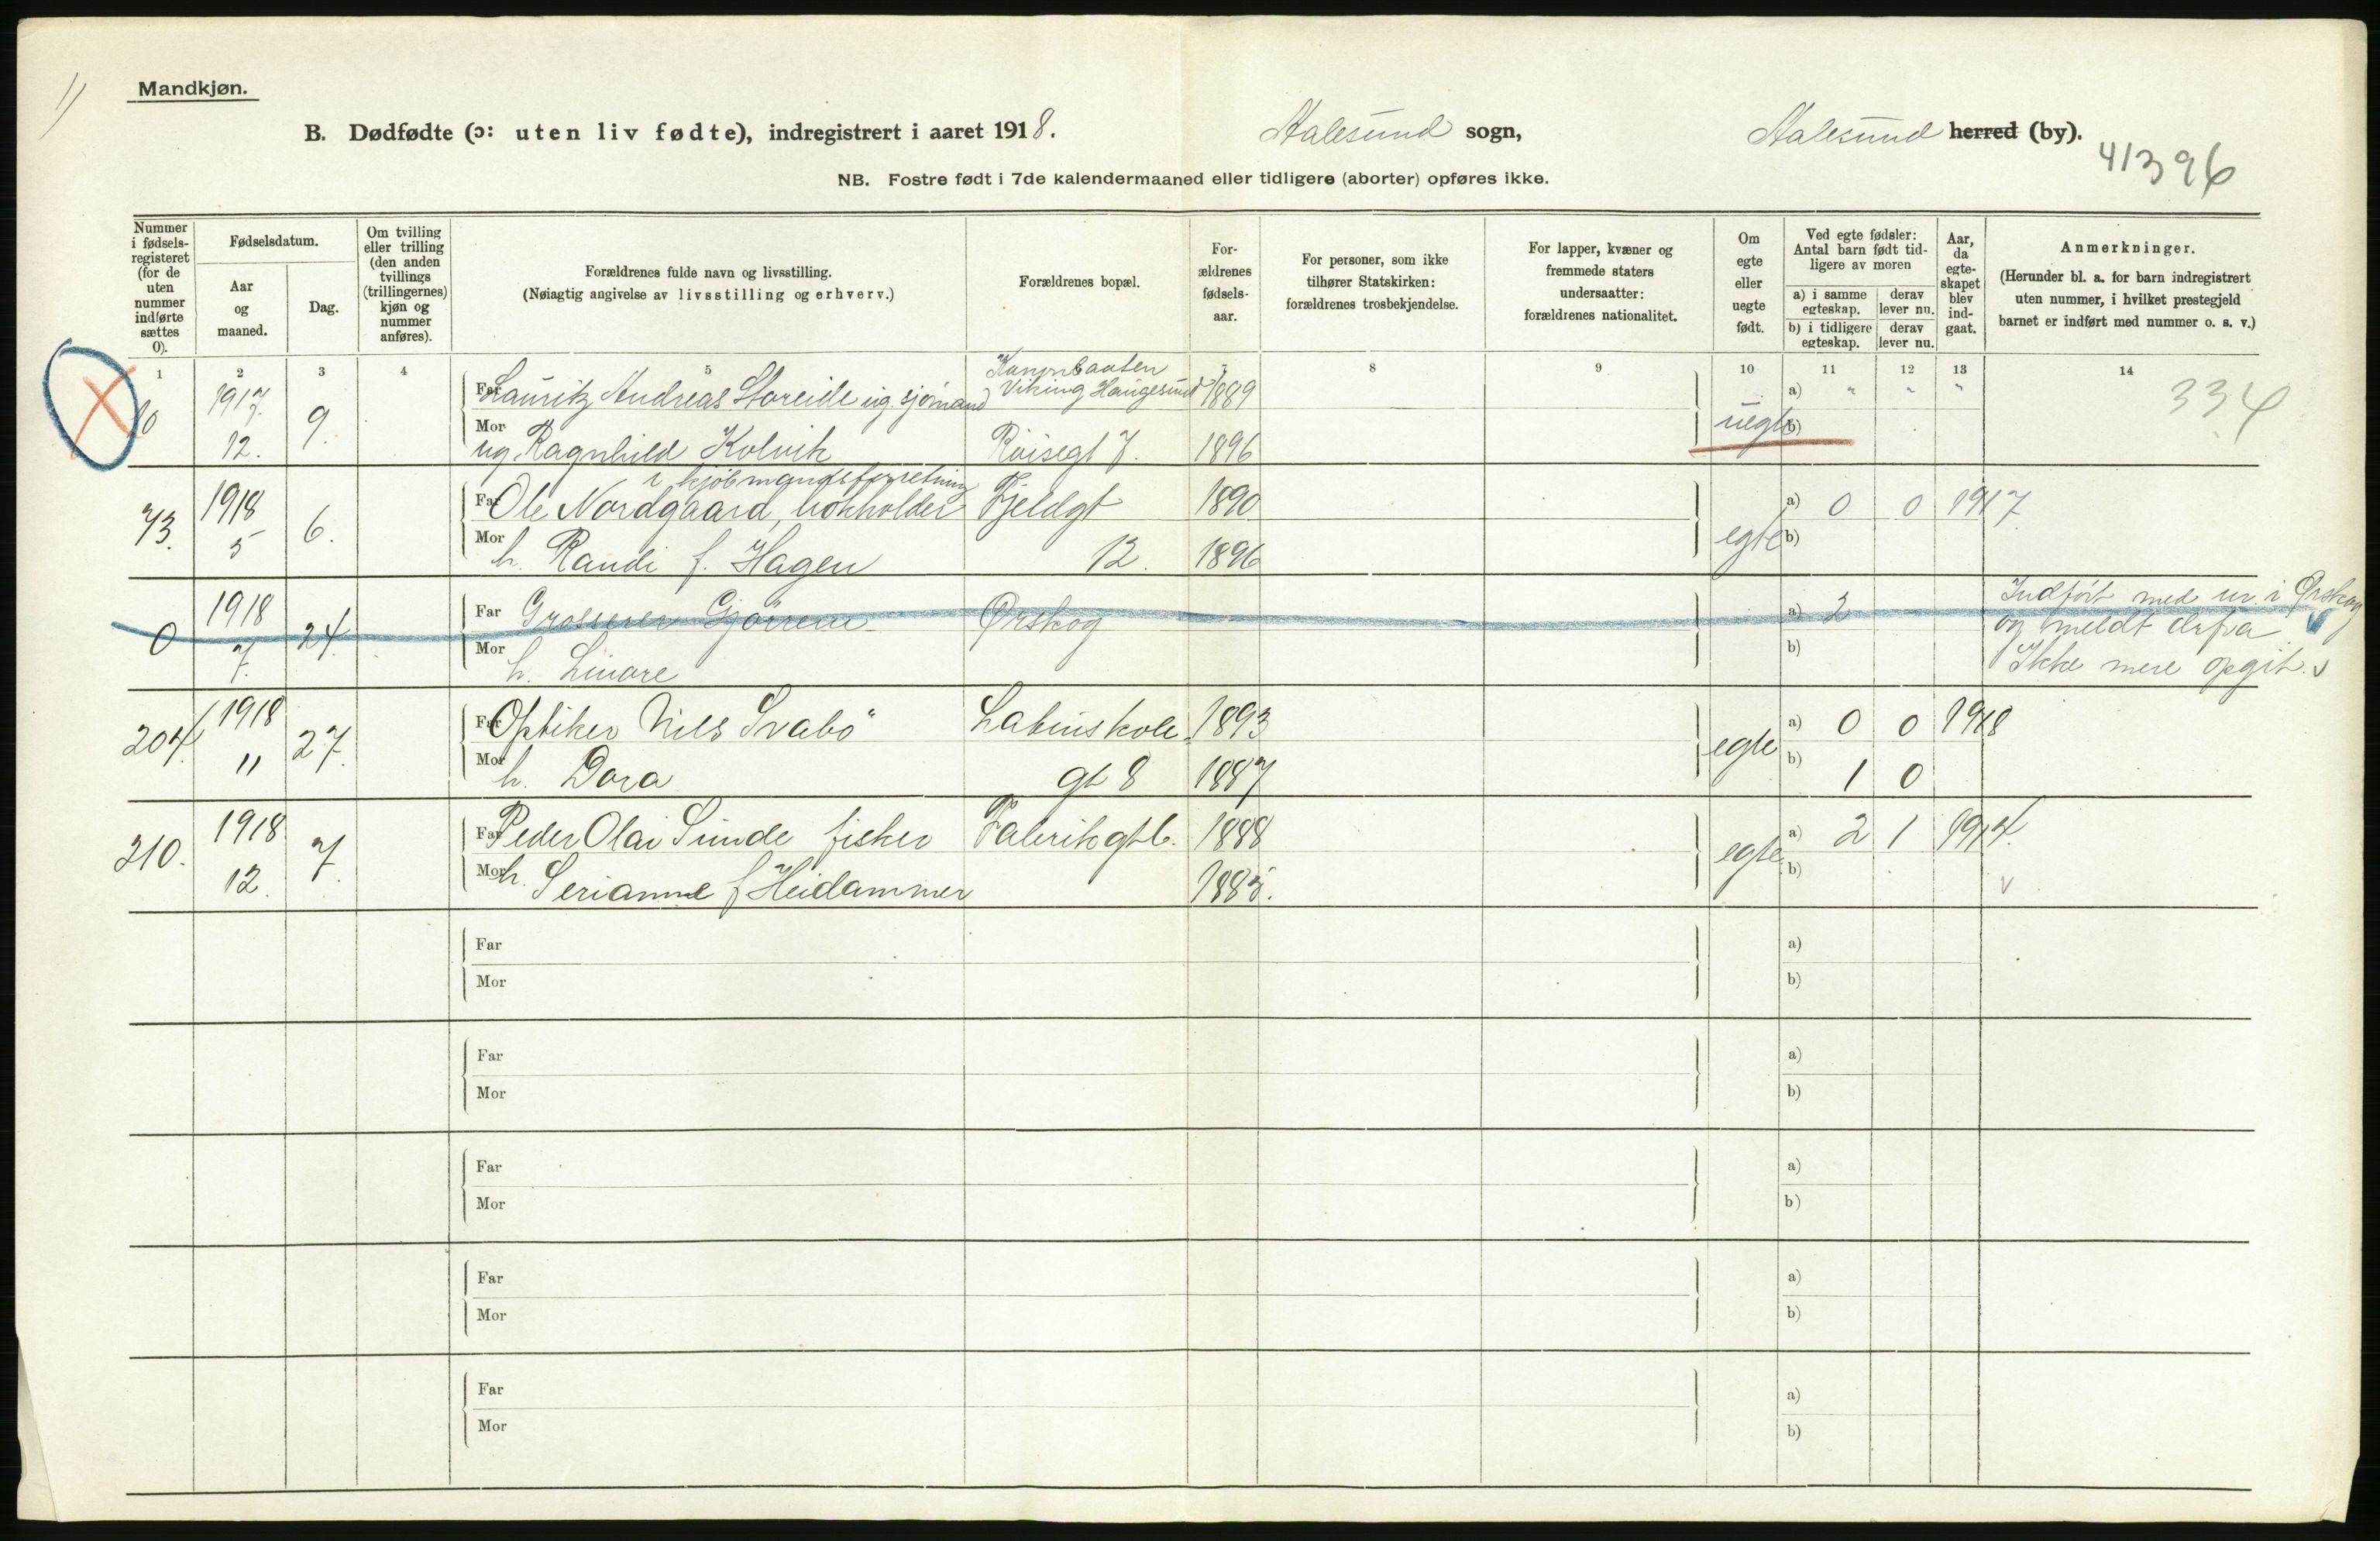 Mandkjøn.
B. Dødfødte (ɔ: uten liv fødte), indregistrert i aaret 1918. Aalesund sogn, Aalesund herred (by).
41396
NB. Fostre født i 7de kalendermaaned eller tidligere (aborter) opføres ikke.
Nummer i fødsels-registeret (for de uten nummer indførte sættes 0).
Fødselsdatum.
Aar og maaned.
Dag.
Om tvilling eller trilling (den anden tvillings (trillingernes) kjøn og nummer anføres).
Forældrenes fulde navn og livsstilling.
(Nøiagtig angivelse av livsstilling og erhverv.)
Forældrenes bopæl.
For-ældrenes fødsels-aar.
For personer, som ikke tilhører Statskirken: forældrenes trosbekjendelse.
For lapper, kvæner og fremmede staters undersaatter: forældrenes nationalitet.
Om egte eller uegte født.
Ved egte fødsler: Antal barn født tid-ligere av moren
a) i samme egteskap. derav lever nu.
b) i tidligere egteskap. derav lever nu.
Aar, da egte-skapet blev ind-gaat.
Anmerkninger.
(Herunder bl. a. for barn indregistrert uten nummer, i hvilket prestegjeld barnet er indført med nummer o. s. v.)
1 2 3 4 5 7 8 9 10 11 12 13 14
Kanonbaaten
0 1917 9. Far Lauritz Andreas Storeide ug. sjømand Viking Haugesund 1889 a) " " " 334
12. Mor ug. Ragnhild Kolvik 7. 1896 uegte b)
i kjøbmandsforretning
73. 1918 6. Far Ole Nordgaard, bokholder Fjeldgt 1890 a) 0 0 1917
5 Mor h. Randi f. Hagen 12. 1896 egte b)
0 1918 24 Far Grosserer Ørskog a) 2 Indført med nr. i Ørskog
7. Mor h. b) og meldt derfra
Ikke mere opgit. v
204. 1918 27. Far Optiker Nils Svabø Latinskole 1893 a) 0 0 1918
11 Mor h. Dora gt 8 1887 egte b) 1 0
210. 1918 7. Far Peder Olai Sunde fisker Fabrikgt 6. 1888 a) 2 1 1914.
12. Mor h. Serianne f Heidammer 1885. egte b) v
Far a)
Mor b)
Far a)
Mor b)
Far a)
Mor b)
Far a)
Mor b)
Far a)
Mor b)